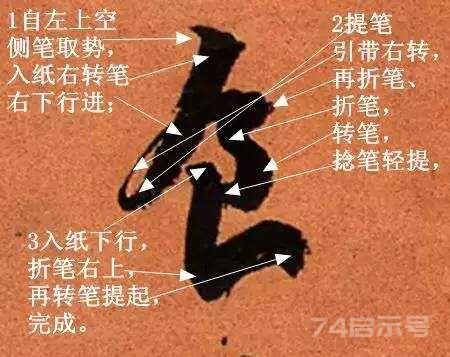 1自左上空
侧笔取势，
入纸右转笔
右下行进；
2提笔
引带右转，
再折笔、
折笔，
转笔，
捻笔轻提，
3入纸下行，
折笔右上，
再转笔提起，
完成。
74启示号